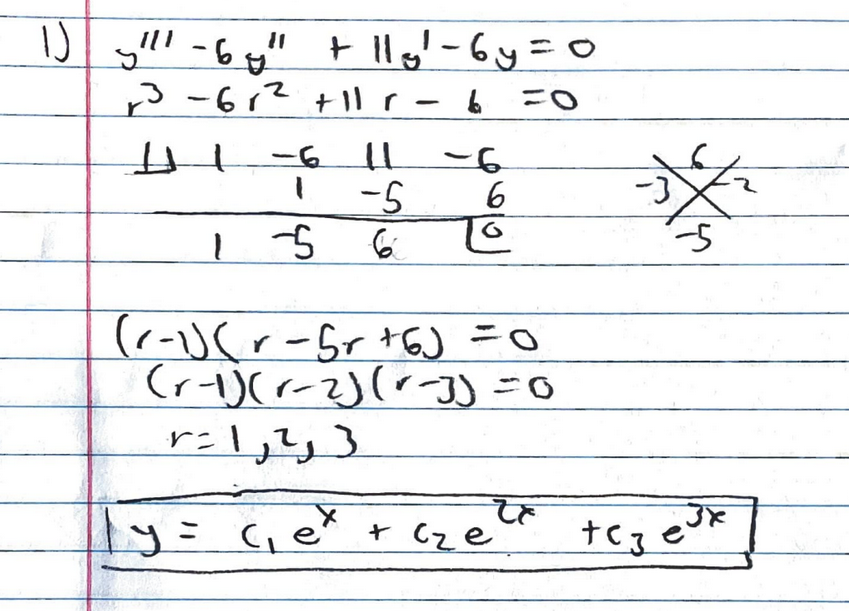 1) y''' - 6y'' + 11y' - 6y = 0
r³ - 6r² + 11r - 6 = 0
1| 1 -6 11 -6
1 -5 6
1 -5 6 |0
6
-3 -2
-5
(r-1)(r - 5r + 6) = 0
(r-1)(r-2)(r-3) = 0
r = 1, 2, 3
y = c₁eˣ + c₂e²ˣ + c₃e³ˣ